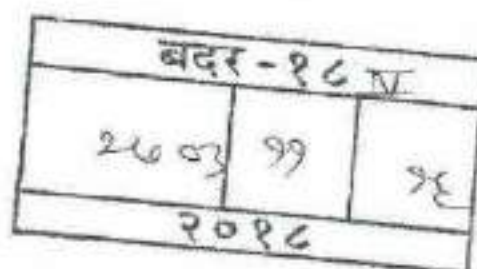 बदर-१८ IV
२७०३ ११ १६
२०१८